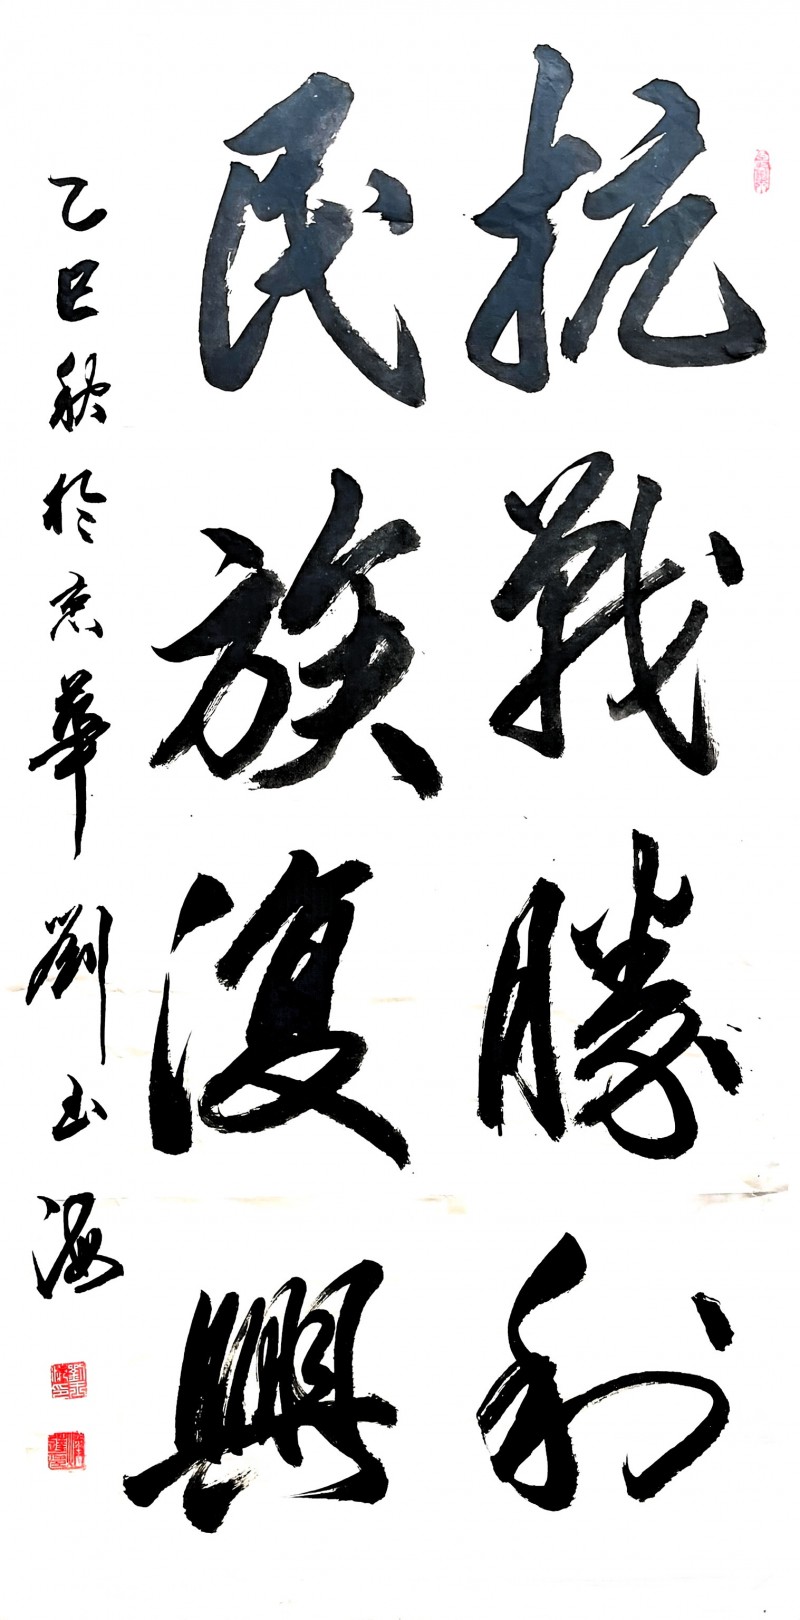 抗戰勝利
民族復興
乙巳秋於京華劉玉海